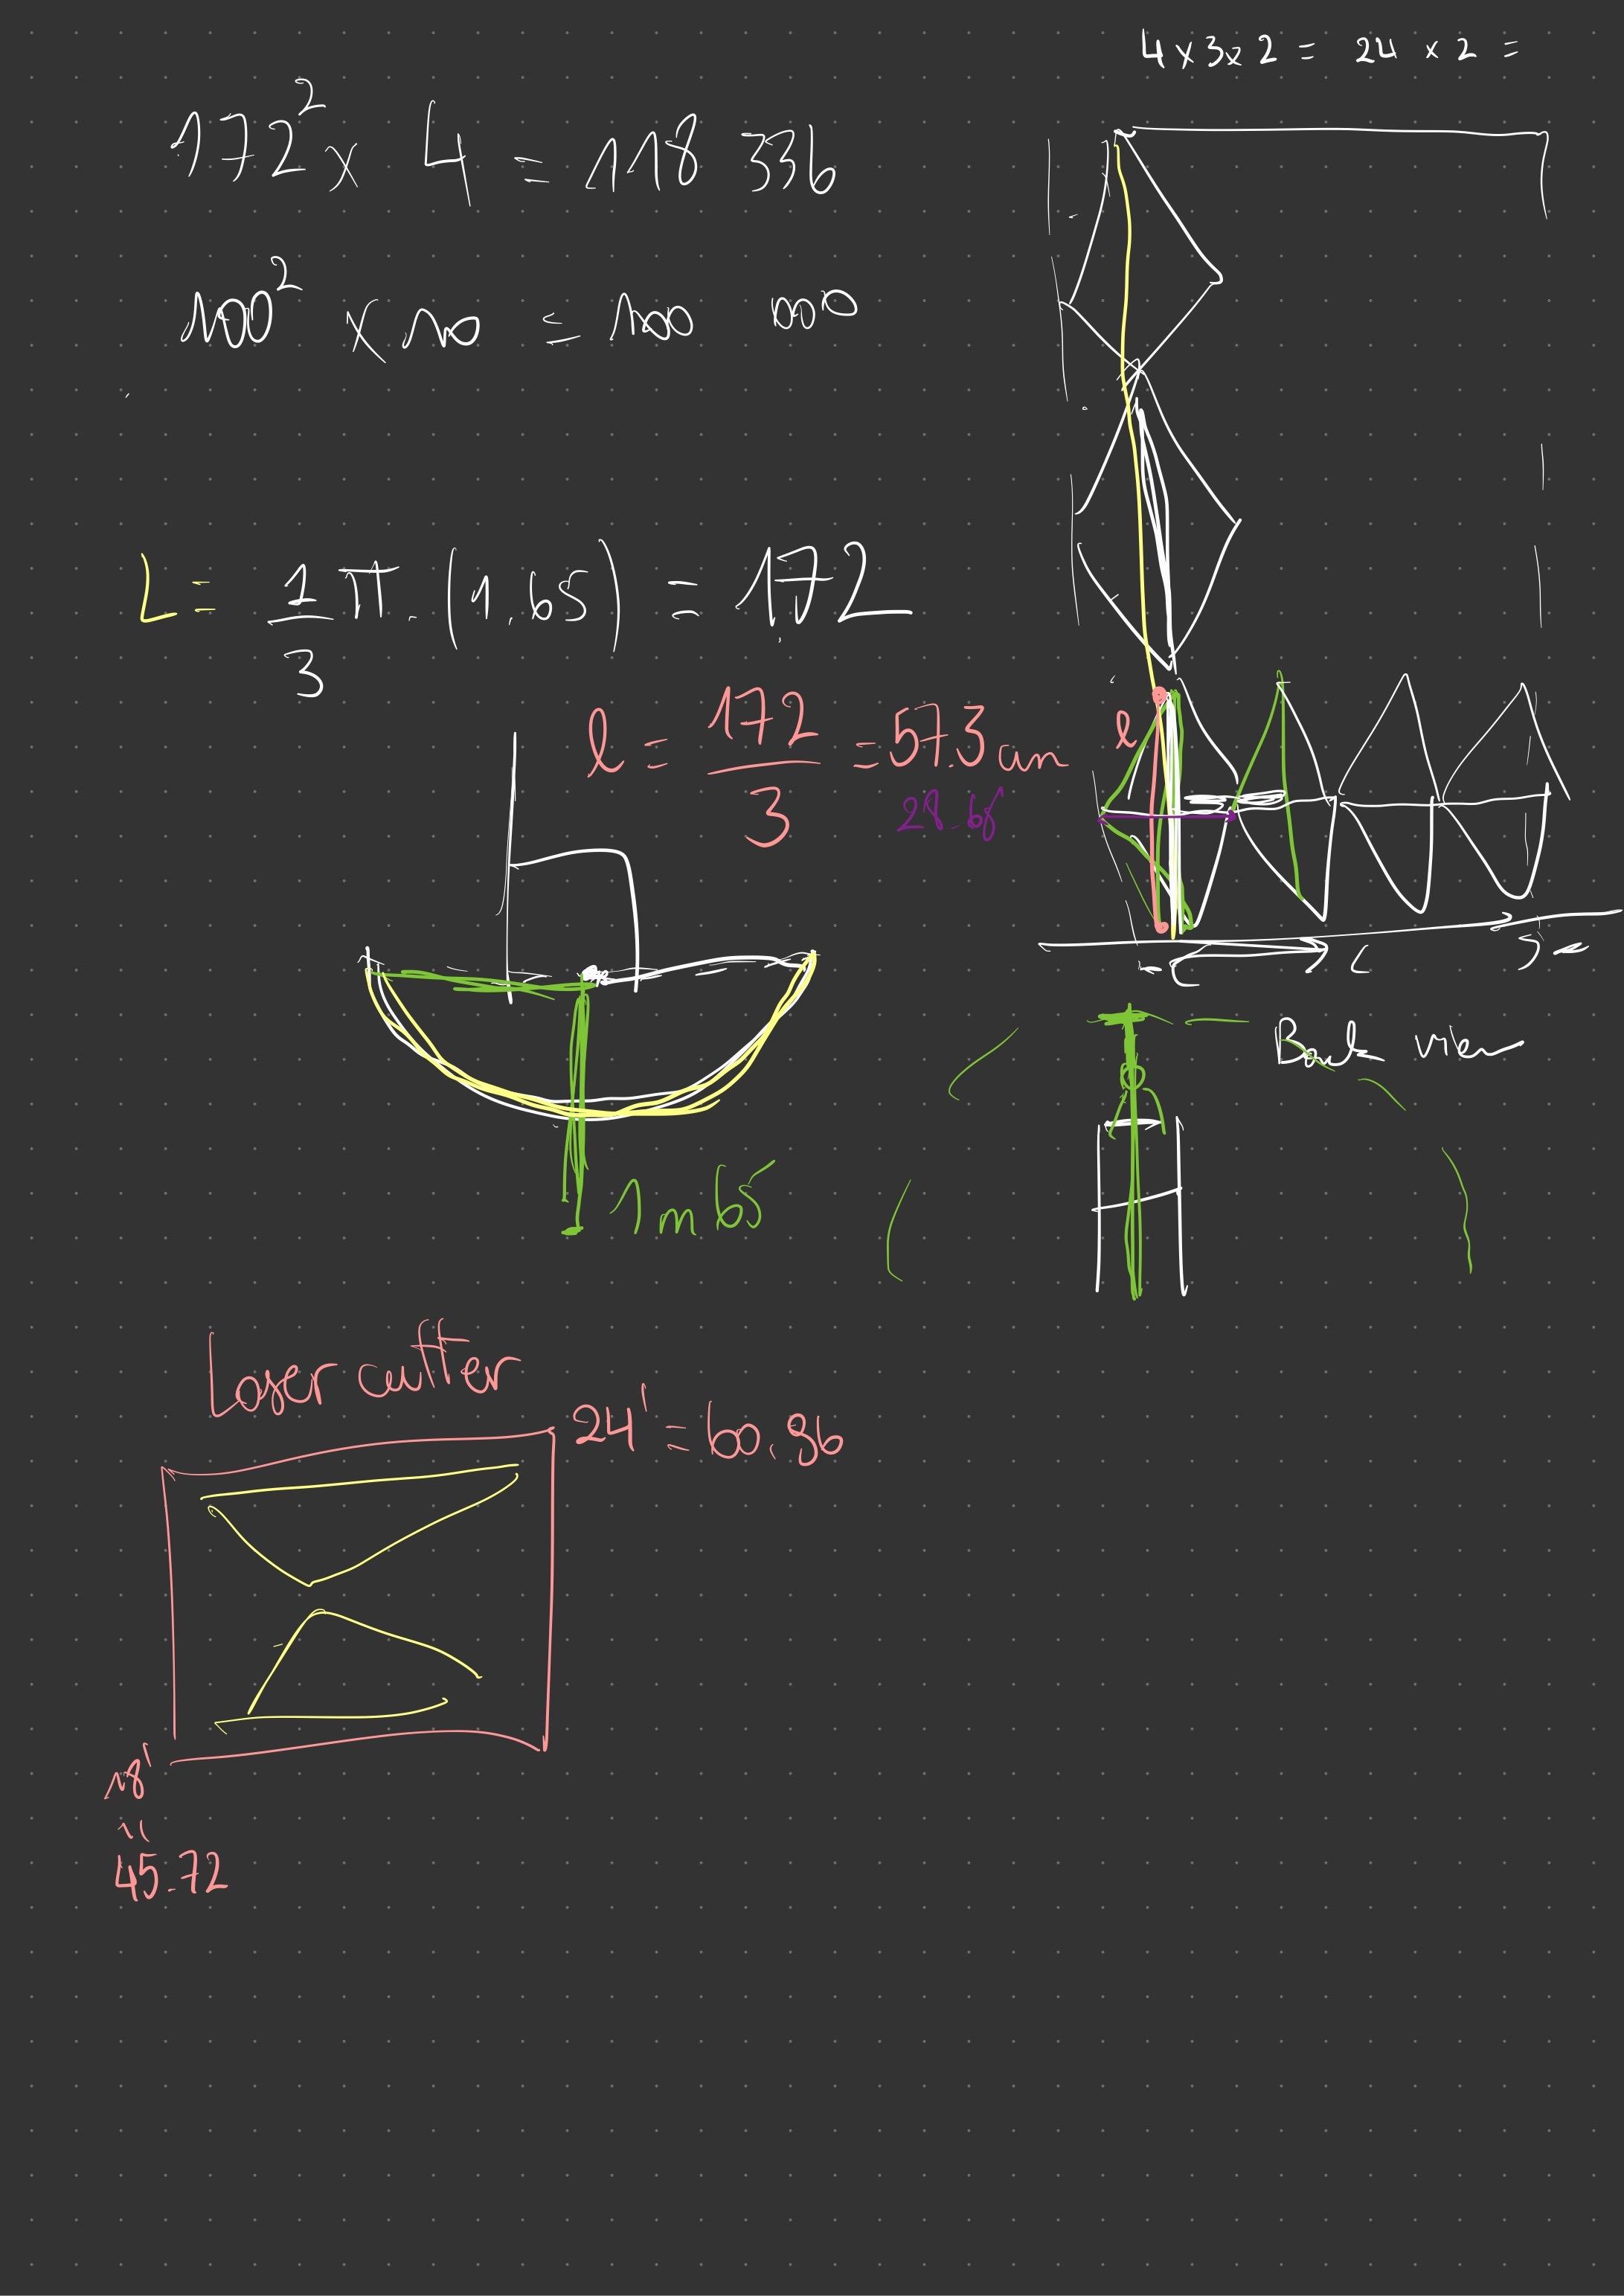 4 x 3 x 2 = 24 x 2 =
172² x 4 = 118 336
100² x 10 = 100 000
L = 1/3 π . (1.65) = 1,72
l = 172/3 = 57.3 cm
l
28.65
1 m 65
Laser cutter
24' = 60.96
18'
=
45.72